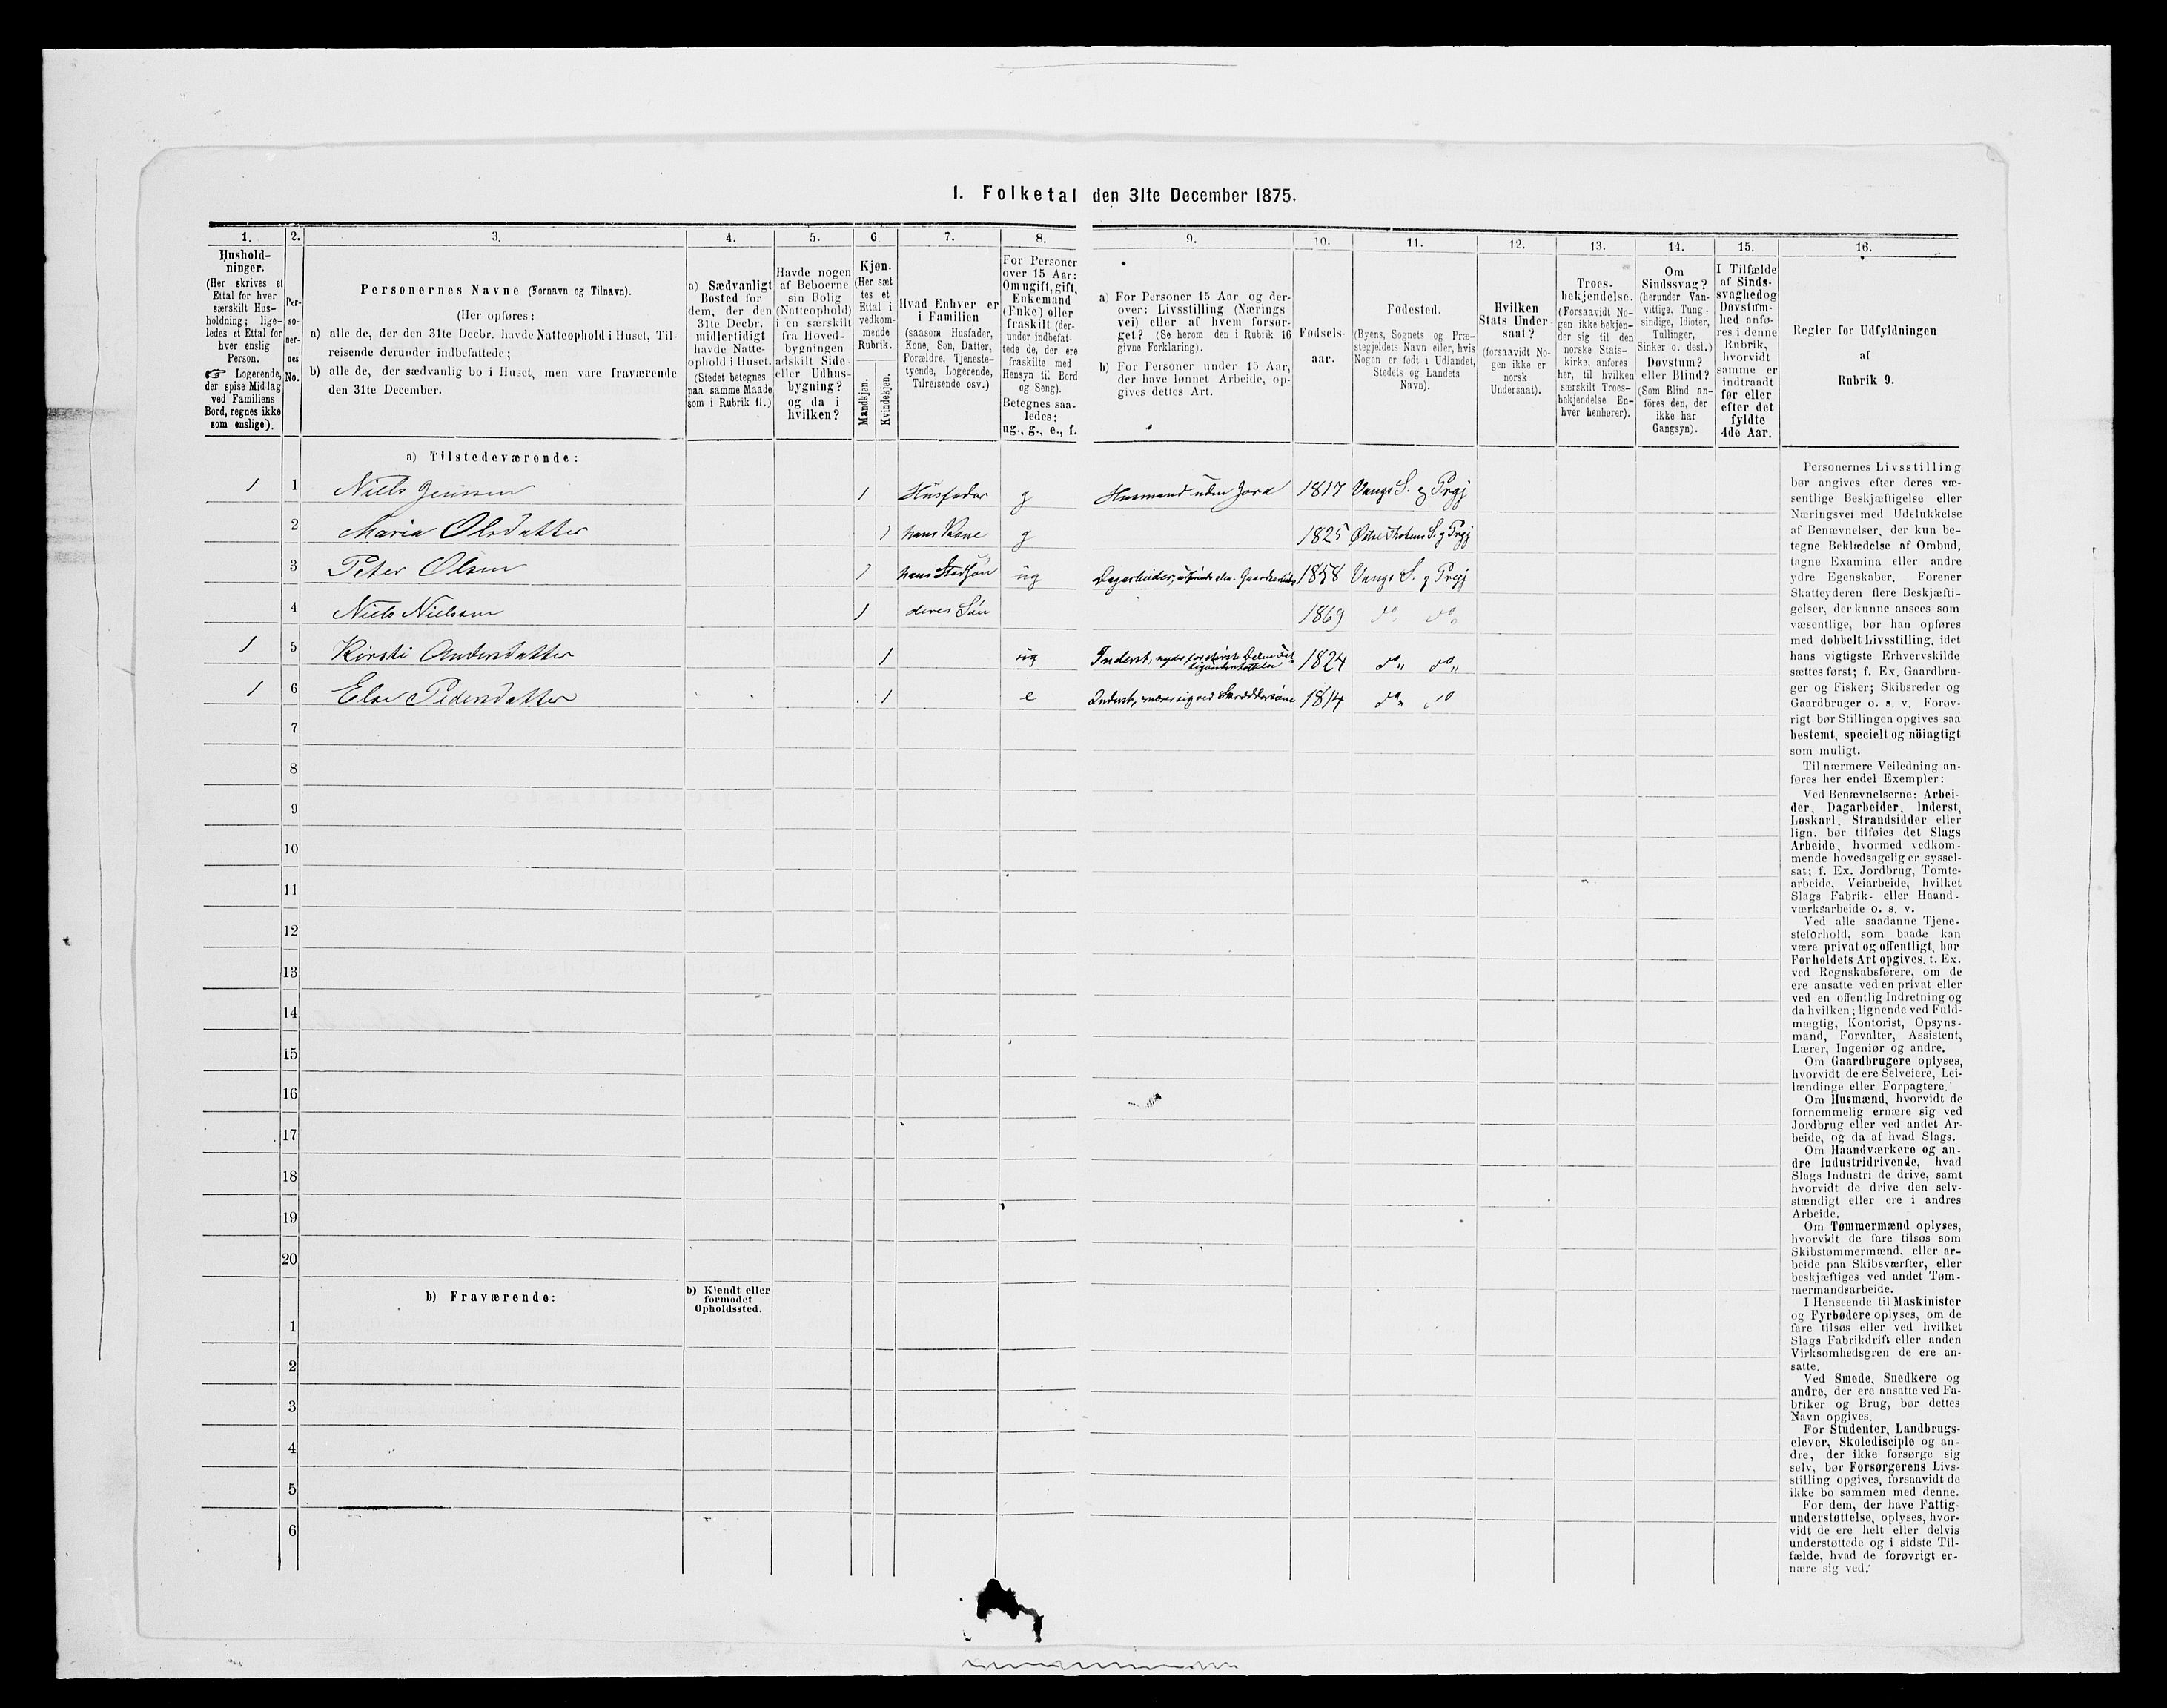 I. Folketal den 31te December 1875.
1.
2.
3.
4.
5.
6
7.
8.
9.
10.
11.
12.
13.
14.
15.
16.
Hushold-
ninger.
(Her skrives et
Ettal for hver
særskilt Hus-
holdning; lige-
ledes et Ettal for
hver enslig
Person.
☞ Logerende,
der spise Middag
ved Familiens
Bord, regnes ikke
som enslige).
Per-
so-
ner-
nes
No.
Personernes Navne (Fornavn og Tilnavn).
(Her opføres:
a) alle de, der den 31te Decbr. havde Natteophold i Huset, Til-
reisende derunder indbefattede;
b) alle de, der sædvanlig bo i Huset, men vare fraværende
den 31te December.
a) Sædvanligt
Bosted for
dem, der den
31te Decbr.
midlertidigt
havde Natte-
ophold i Huset.
(Stedet betegnes
paa samme Maade
som i Rubrik 11.)
Havde nogen
af Beboerne
sin Bolig
(Natteophold)
i en særskilt
fra Hoved-
bygningen
adskilt Side-
eller Udhus-
bygning?
og da i
hvilken?
Kjøn.
(Her sæt
tes et
Ettal i
vedkom-
mende
Rubrik.
Mandkjøn.
Kvindekjøn.
Hvad Enhver er
i Familien
(saasom Husfader,
Kone, Søn, Datter,
Forældre, Tjeneste-
tyende, Logerende,
Tilreisende osv.)
For Personer
over 15 Aar:
Om ugift, gift,
Enkemand
(Enke) eller
fraskilt (der-
under indbefat-
tede de, der ere
fraskilte med
Hensyn til Bord
og Seng).
Betegnes saa-
ledes:
ug., g., e., f.
a) For Personer 15 Aar og der-
over: Livsstilling (Nærings
vei) eller af hvem forsør-
get? (Se herom den i Rubrik 16
givne Forklaring).
b) For Personer under 15 Aar,
der have lønnet Arbeide, op-
gives dettes Art.
Fødsels-
aar.
Fødested.
(Byens, Sognets og Præ-
stegjeldets Navn eller, hvis
Nogen er født i Udlandet,
Stedets og Landets
Navn).
Hvilken
Stats Under-
saat?
(forsaavidt No-
gen ikke er
norsk
Undersaat).
Troes-
bekjendelse.
(Forsaavidt No-
gen ikke bekjen-
der sig til den
norske Stats-
kirke, anføres
her, til hvilken
særskilt Troes-
bekjendelse En-
hver henhører).
Om
Sindssvag?
(herunder Van-
vittige, Tung-
sindige, Idioter,
Tullinger,
Sinker o. desl.)
Døvstum?
eller Blind?
(Som Blind an-
føres den, der
ikke har
Gangsyn).
I Tilfælde
af Sinds-
svaghed og
Døvstum-
hed anfø-
res i denne
Rubrik,
hvorvidt
samme er
indtraadt
før eller
efter det
fyldte
4de Aar.
Regler for Udfyldningen
af
Rubrik 9.
a) Tilstedeværende:
1 1 Niels Jenssen 1 Husfader g Husmand uden Jord 1817 Vangs S. og Prgj
2 Maria Olsdatter 1 hans Kone g 1825 Østre Thotens S. og Prgj
3 Peter Olsen 1 hans Stedsøn ug Dagarbeider, 1858 Vangs S. og Prgj
4 Niels Nielsen 1 deres Søn 1869 do do
1 5 Kirsti Andersdatter 1 ug Inderst, 1824 do do
1 6 Else Pedersdatter 1 e Inderst, nærer sig ved 1814 do do
7
8
9
10
11
12
13
14
15
16
17
18
19
20
b) Fraværende:
b) Kjendt eller
formodet
Opholdssted.
1
2
3
4
5
6
Personernes Livsstilling
bør angives efter deres væ-
sentlige Beskjæftigelse eller
Næringsvei med Udelukkelse
af Benævnelser, der kun be-
tegne Beklædelse af Ombud,
tagne Examina eller andre
ydre Egenskaber. Forener
Skatteyderen flere Beskjæfti-
gelser, der kunne ansees som
væsentlige, bør han opføres
med dobbelt Livsstilling, idet
hans vigtigste Erhvervskilde
sættes først; f. Ex. Gaardbru-
ger og Fisker; Skibsreder og
Gaardbruger o. s. v. Forøv-
rigt bør Stillingen opgives saa
bestemt, specielt og nöiagtigt
som muligt.
Til nærmere Veiledning an-
føres her endel Exempler:
Ved Benævnelserne: Arbei-
der, Dagarbeider, Inderst,
Løskarl, Strandsidder eller
lign. bør tilføies det Slags
Arbeide, hvormed vedkom-
mende hovedsagelig er syssel-
sat; f. Ex. Jordbrug, Tomte-
arbeide, Veiarbeide, hvilket
Slags Fabrik- eller Haand-
værksarbeide o. s. v.
Ved alle saadanne Tjene-
steforhold, som baade kan
være privat og offentligt, bør
Forholdets Art opgives, t. Ex.
ved Regnskabsførere, om de
ere ansatte ved en privat eller
ved en offentlig Indretning og
da hvilken; lignende ved Fuld-
mægtig, Kontorist, Opsyns-
mand, Forvalter, Assistent,
Lærer, Ingeniør og andre.
Om Gaardbrugere oplyses,
hvorvidt de ere Selveiere, Lei-
lændinge eller Forpagtere.
Om Husmænd, hvorvidt de
fornemmelig ernære sig ved
Jordbrug eller ved andet Ar-
beide, og da af hvad Slags.
Om Haandværkere og an-
dre Industridrivende, hvad
Slags Industri de drive, samt
hvorvidt de drive den selv-
stændigt eller ere i andres
Arbeide.
Om Tømmermænd oplyses,
hvorvidt de fare tilsøs som
Skibstømmermænd, eller ar-
beide paa Skibsværfter, eller
beskjæftiges ved andet Tøm-
mermandsarbeide.
I Henseende til Maskinister
og Fyrbødere oplyses, om de
fare tilsøs eller ved hvilket
Slags Fabrikdrift eller anden
Virksomhedsgren de ere an-
satte.
Ved Smede, Snedkere og
andre, der ere ansatte ved Fa-
briker og Brug, bør dettes
Navn opgives.
For Studenter, Landbrugs-
elever, Skoledisciple og an-
dre, der ikke forsørge sig
selv, bør Forsørgerens Livs-
stilling opgives, forsaavidt de
ikke bo sammen med denne.
For dem, der have Fattig-
understøttelse, oplyses, hvor-
vidt de ere helt eller delvis
understøttede og i sidste Til-
fælde, hvad de forøvrigt er-
nære sig ved.